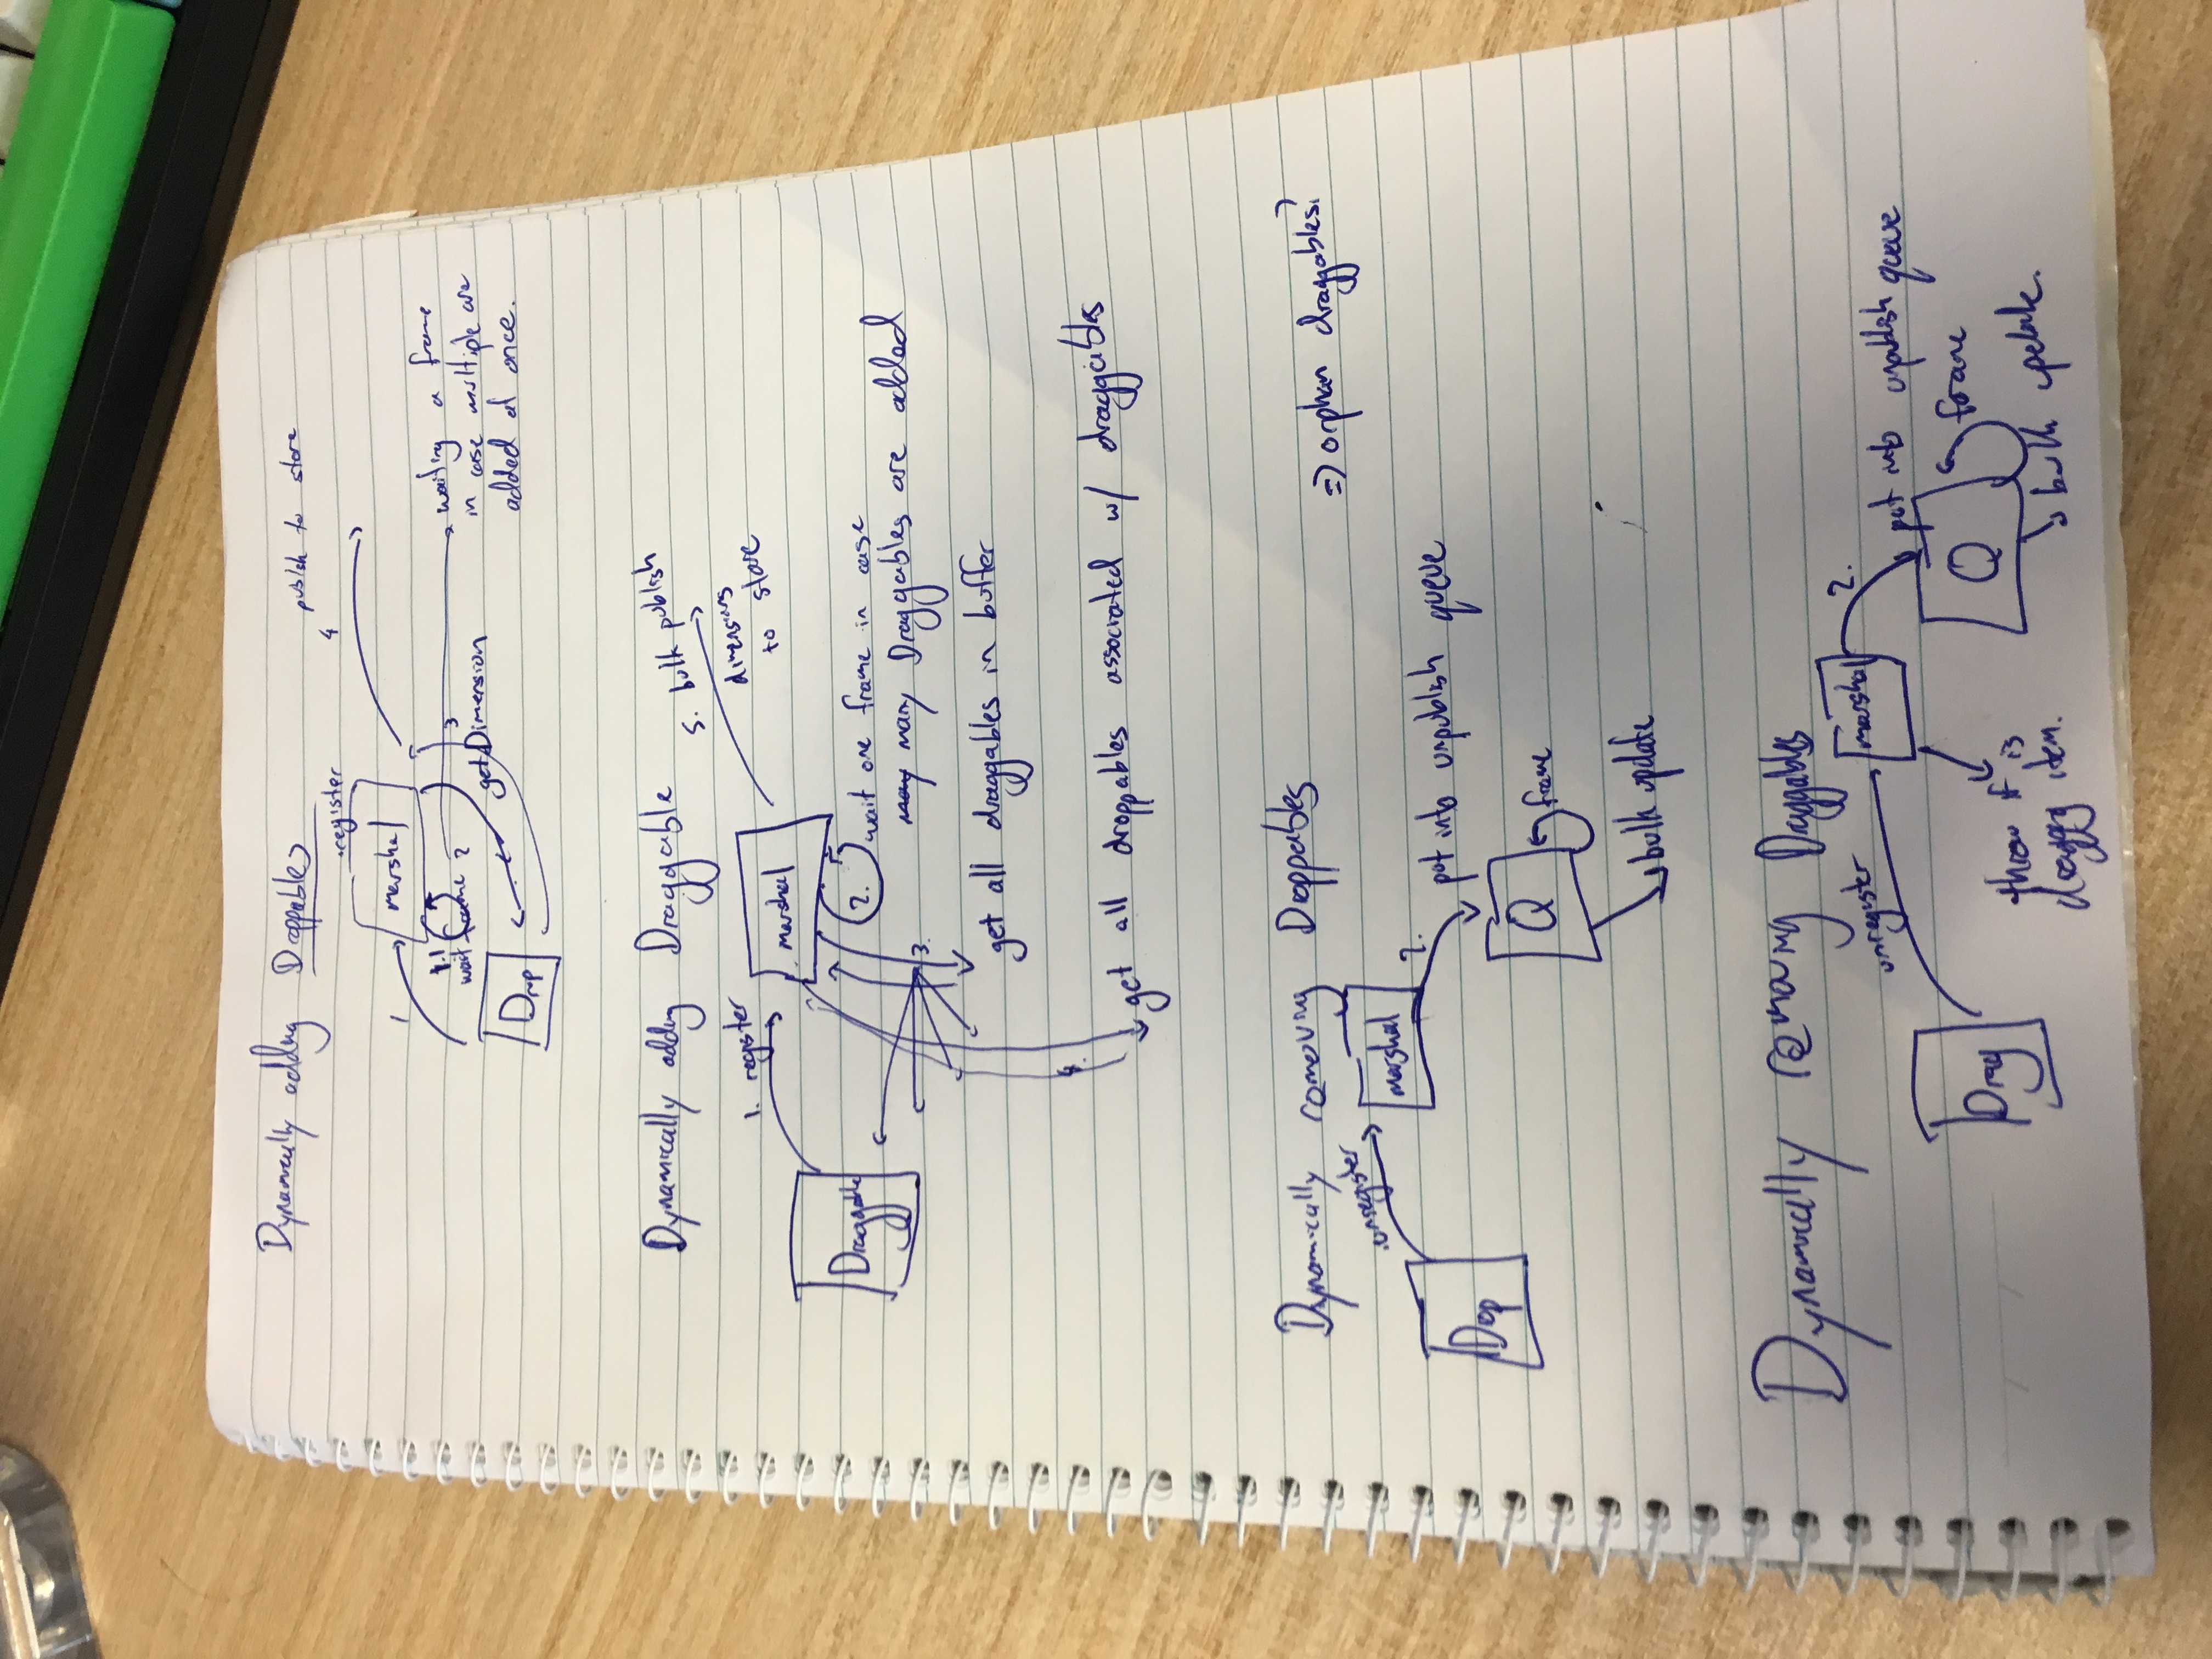 Dynamically adding Droppables
4 publish to store
register
1
marshal
1.1
wait frame 2
3
getDimension
Drop
waiting a frame
in case multiple are
added at once.
Dynamically adding Draggable
5. bulk publish
dimensions
to store
1. register
marshal
Draggable
2.
wait one frame in case
many many Draggables are added
3.
get all draggables in buffer
4.
get all droppables associated w/ draggables
Dynamically removing Droppables
=> orphan draggables?
unregister
marshal
2.
put into unpublish queue
Drop
Q
frame
bulk update
Dynamically removing Draggables
unregister
marshal
2.
put into unpublish queue
Drag
throw if is
dragging item.
Q
frame
bulk update.